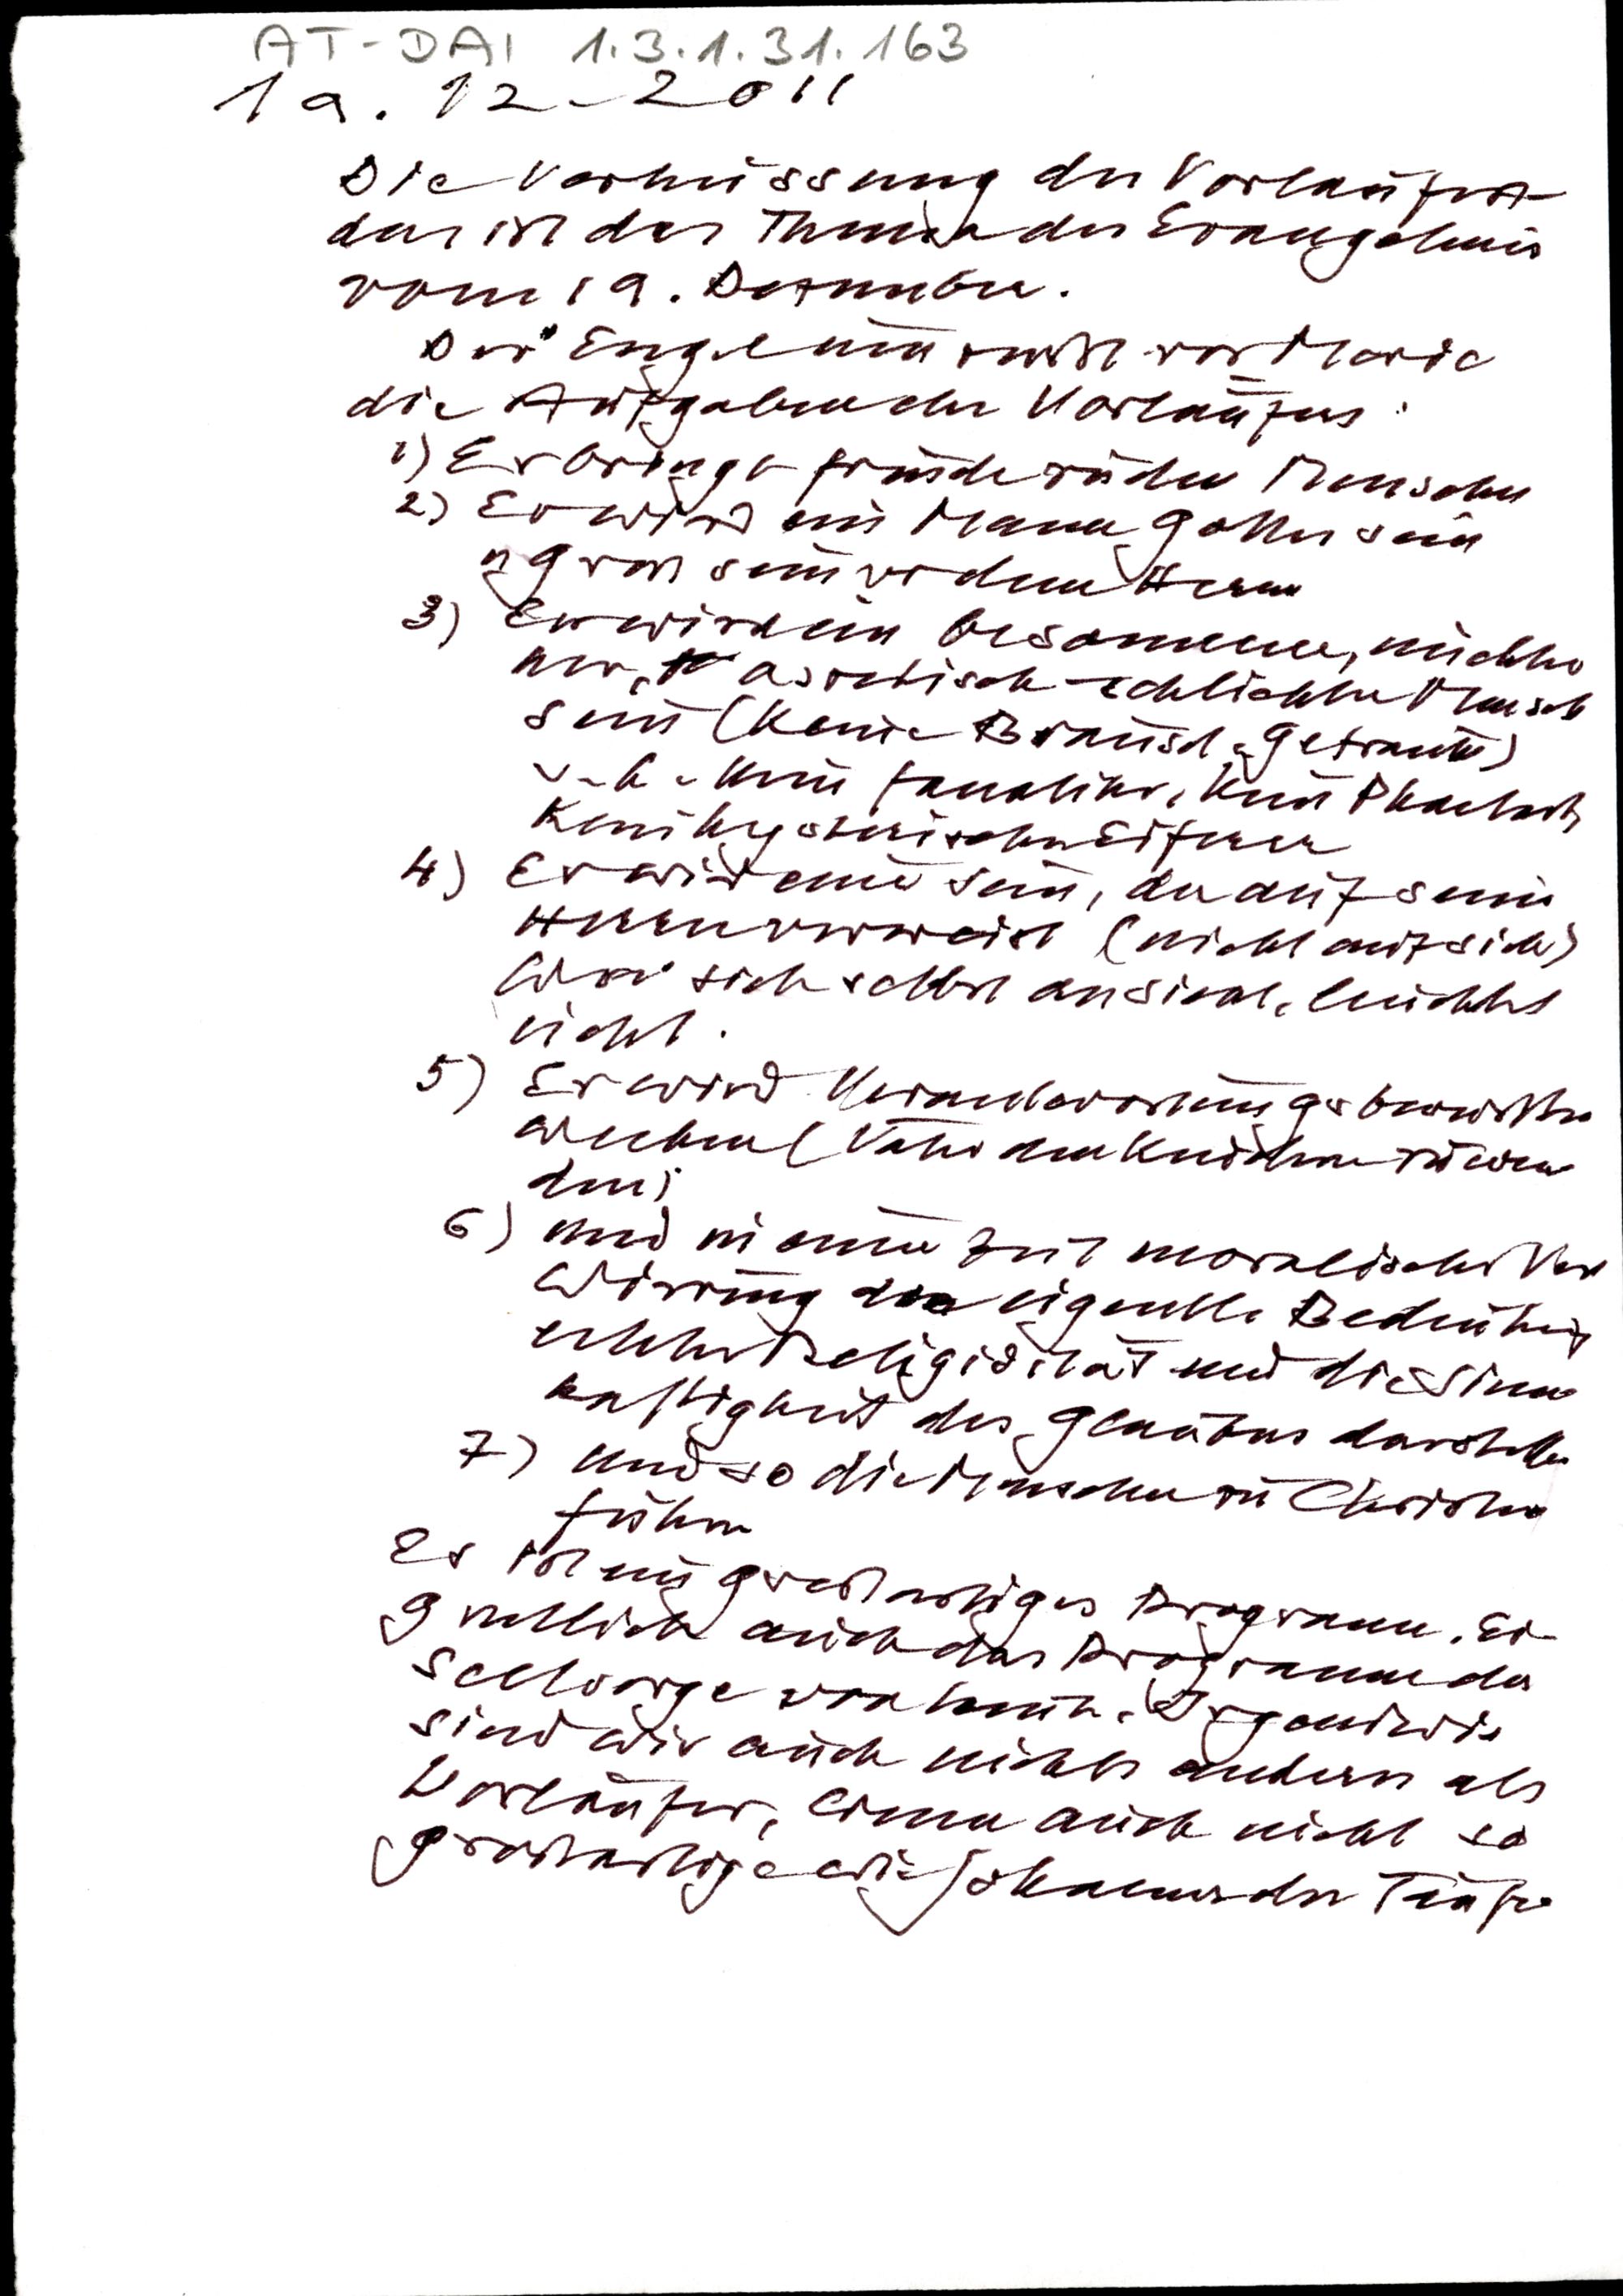 AT-DAI 1.3.1.31.163
19.12-2011
Die Verheissung des Vorläufers
das ist das Thema des Evangeliums
vom 19. Dezember.
Der Engel vor Maria
die Aufgaben des Vorläufers:
1) Er bringt Freude zu den Menschen
2) Er wird ein Mann Gottes sein
u groß sein vor dem Herrn
3) Er wird ein besonnener, nüchter
ner, asketisch-schlichter Mensch
sein (Keine Berausch. Getränke)
Kein Fanatiker, kein Phantast,
kein hysterischer Eiferer
4) Er wird einer sein, der auf seinen
Herrn verweist (nicht auf sich)
Wer sich selbst anstrahlt, leuchtet
nicht.
5) Er wird Verantwortungsbewußtsein
wecken (Väter den Kindern zuwen
den)
6) und in einer Zeit moralischer Ver
wirrung die eigentl. Bedeutung
echter Religiosität und die Sinn
haftigkeit des Glaubens darstellen
7) und so die Menschen zu Christus
führen
Es ist ein großartiges Programm. Ei-
gentlich auch das Programm der
Seelsorge von heute. Irgendwie
sind wir auch nichts anderes als
Vorläufer, wenn auch nicht so
großartige wie Johannes der Täufer